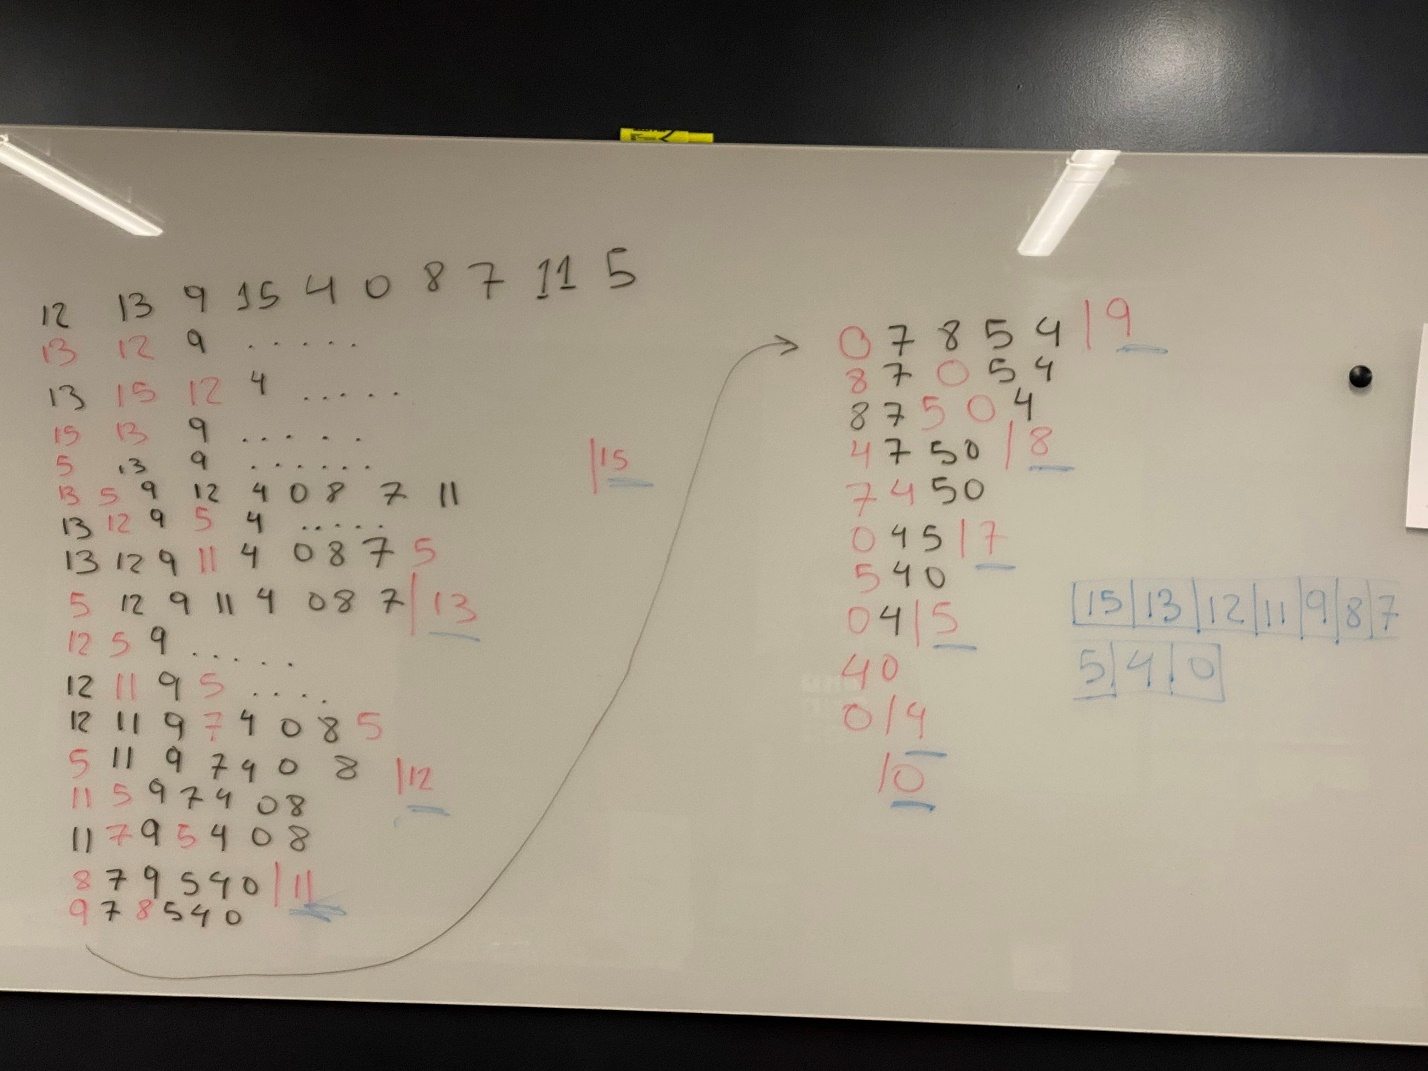 12 13 9 15 4 0 8 7 11 5
13 12 9 .....
13 15 12 4 .....
15 13 9 .....
5 13 9 ......
|15
13 5 9 12 4 0 8 7 11
13 12 9 5 4 .....
13 12 9 11 4 0 8 7 5
5 12 9 11 4 0 8 7 |13
12 5 9 .....
12 11 9 5 ....
12 11 9 7 4 0 8 5
5 11 9 7 4 0 8 |12
11 5 9 7 4 0 8
11 7 9 5 4 0 8
8 7 9 5 4 0 |11
9 7 8 5 4 0
0 7 8 5 4 |9
8 7 0 5 4
8 7 5 0 4
4 7 5 0 |8
7 4 5 0
0 4 5 |7
5 4 0
0 4 |5
4 0
0 |4
|0
|15|13|12|11|9|8|7
5|4|0|